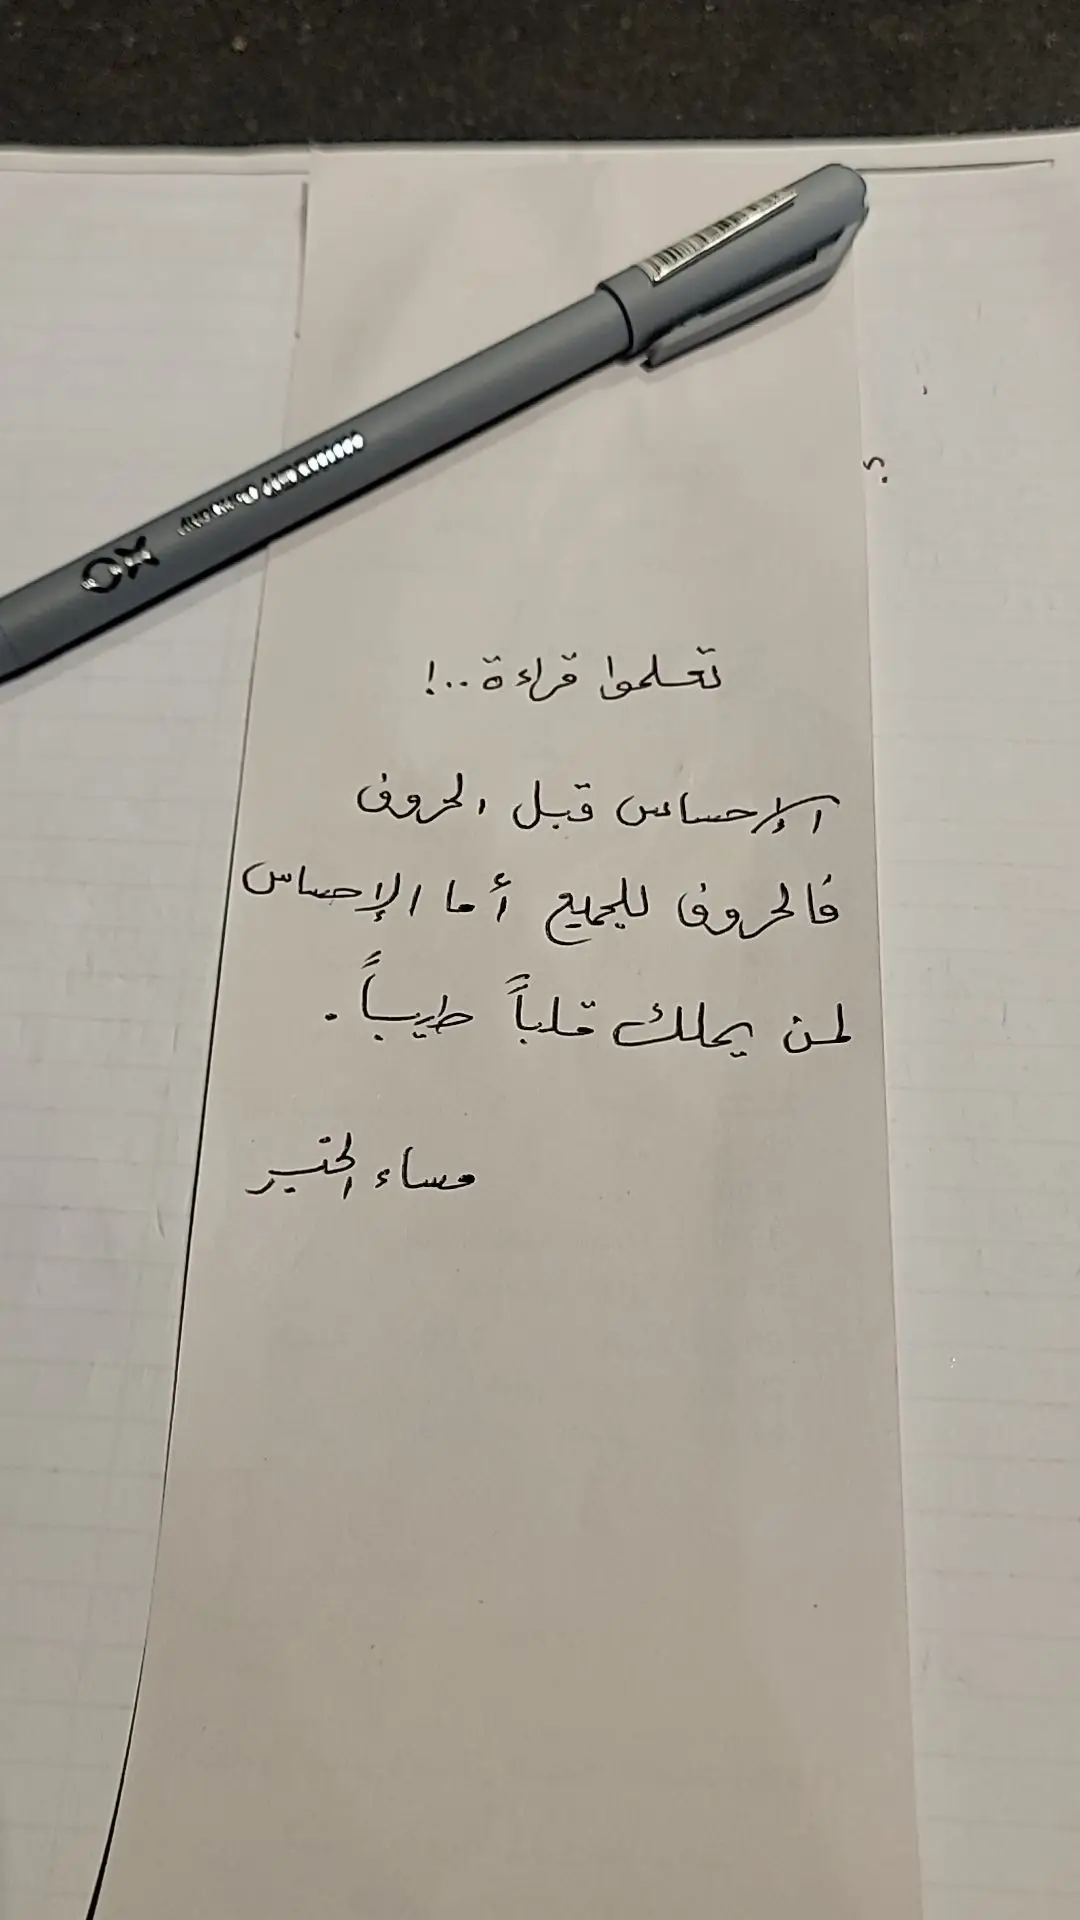 OX
؟
تعلموا قراءة ..!
الإحساس قبل الحروف
فالحروف للجميع أما الإحساس
لمن يملك قلباً طيباً .
مساء الخير